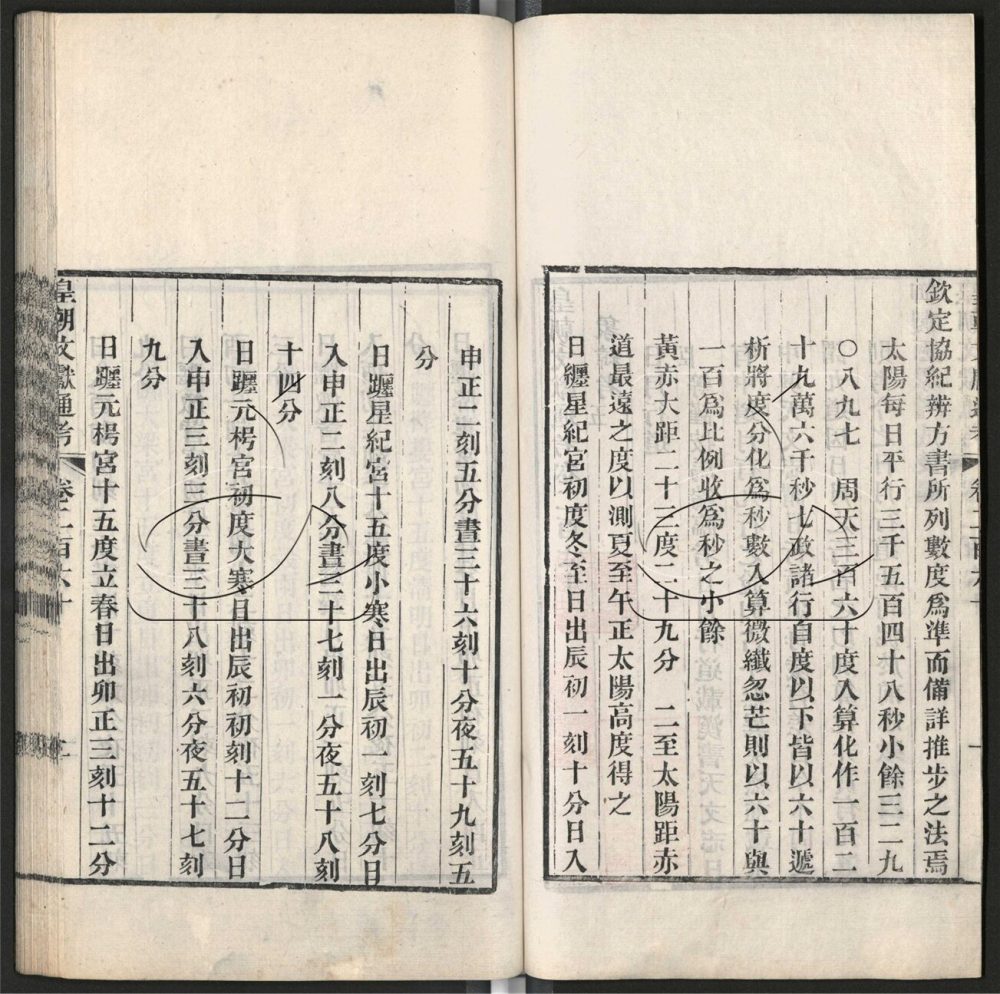 欽定協紀辨方書所列數度爲準而備詳推步之法焉
太陽每日平行三千五百四十八秒小餘三二九
〇八九七　周天三百六十度入算化作一百二
十九萬六千秒七政諸行自度以下皆以六十遞
析將度分化爲秒數入算微纖忽芒則以六十與
一百爲比例收爲秒之小餘
黃赤大距二十三度二十九分　二至太陽距赤
道最遠之度以測夏至午正太陽高度得之
日纏星紀宮初度冬至日出辰初一刻十分日入
申正二刻五分晝三十六刻十分夜五十九刻五
分
日躔星紀宮十五度小寒日出辰初一刻七分日
入申正二刻八分晝三十七刻一分夜五十八刻
十四分
日躔元枵宮初度大寒日出辰初初刻十二分日
入申正三刻三分晝三十八刻六分夜五十七刻
九分
日躔元枵宮十五度立春日出卯正三刻十二分
皇朝文獻通考　卷二百六十